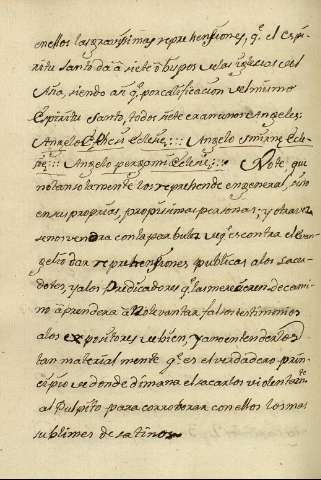 en ellos las gravissimas reprehensiones, q.e el Espi-
ritu Santo dà à siete obispos de las iglesias del
Asia, siendo an q.e por calificacion del mismo
Espiritu Santo, todos siete eran unos Angeles;
Angelo Ephesi Eclesie::: Angelo Smirne Ecle-
sie::: Angelo pergami Eclesie::: Note que
no tan solamente los reprehende en general, sino
en sus proprias, propissimas personas; y otra vez
se nos vendra con la parbulez de q.e es contra el Evan-
gelio dar reprehensiones publicas a los Sacer-
dotes, y a los Predicadores q.e las merecieren de cami-
no aprendera à no levantar falsos testimonios
a los expositores de bien, y a no entenderlos
tan materialmente q.e es el verdadero prin-
cipio de donde dimana el sacarlos violentam.te
al Pulpito para corroborar con ellos los mas
sublimes desatinos